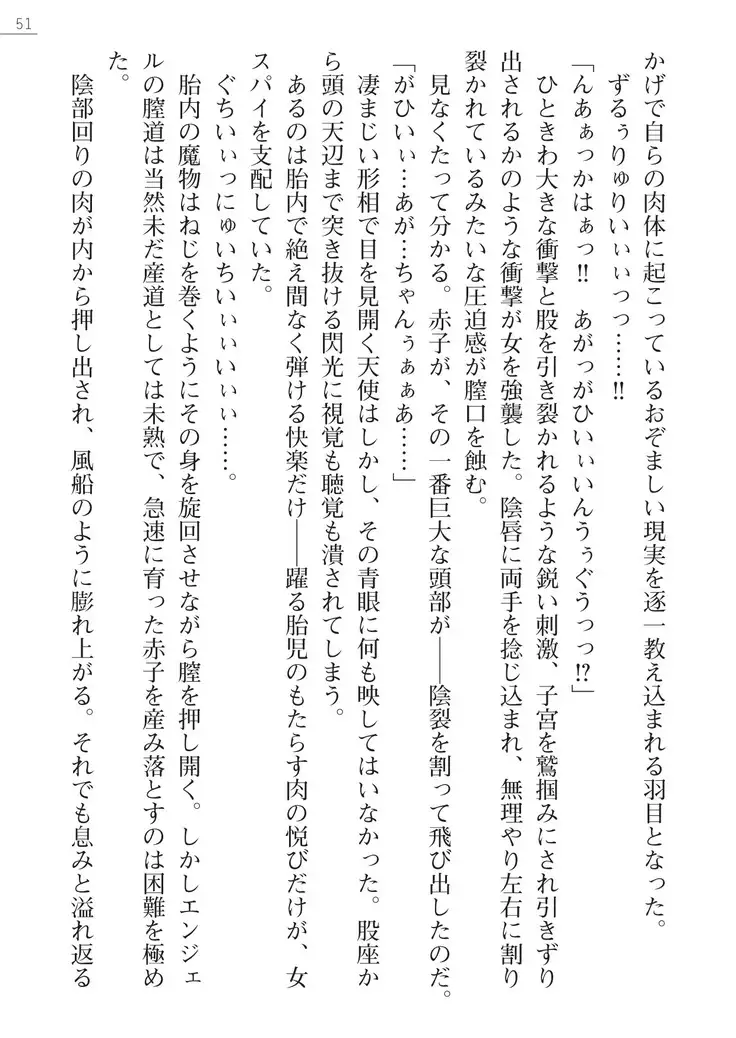 51
かげで自らの肉体に起こっているおぞましい現実を逐一教え込まれる羽目となった。
ずるぅりゅりぃぃぃっっ……‼
「んあぁっかはぁっ‼　あがっがひいぃいんうぅぐうっっ⁉」
ひときわ大きな衝撃と股を引き裂かれるような鋭い刺激、子宮を鷲掴みにされ引きずり
出されるかのような衝撃が女を強襲した。陰唇に両手を捻じ込まれ、無理やり左右に割り
裂かれているみたいな圧迫感が膣口を蝕む。
見なくたって分かる。赤子が、その一番巨大な頭部が――陰裂を割って飛び出したのだ。
「がひいぃ…あが…ちゃんぅぁぁあ……」
凄まじい形相で目を見開く天使はしかし、その青眼に何も映してはいなかった。股座か
ら頭の天辺まで突き抜ける閃光に視覚も聴覚も潰されてしまう。
あるのは胎内で絶え間なく弾ける快楽だけ――躍る胎児のもたらす肉の悦びだけが、女
スパイを支配していた。
ぐちいぃっにゅいちいぃぃいぃぃ……。
胎内の魔物はねじを巻くようにその身を旋回させながら膣を押し開く。しかしエンジェ
ルの膣道は当然未だ産道としては未熟で、急速に育った赤子を産み落とすのは困難を極め
た。
陰部回りの肉が内から押し出され、風船のように膨れ上がる。それでも息みと溢れ返る